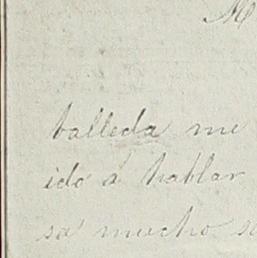 M
balleda me
ido á hablar
sa mucho s